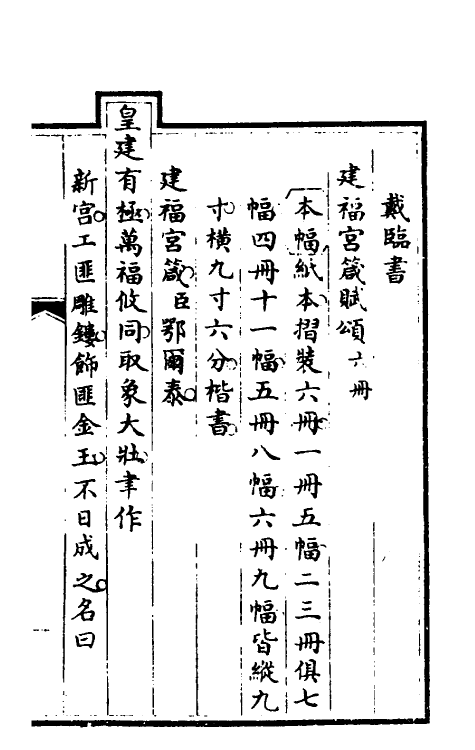 戴臨書
建福宮箴賦頌六冊
本幅紙本摺裝六冊一冊五幅二三冊俱七
幅四冊十一幅五冊八幅六冊九幅皆縱九
寸橫九寸六分楷書
建福宮箴臣鄂爾泰
皇建有極萬福攸同取象大壯聿作
新宮工匪雕鏤飾匪金玉不日成之名曰